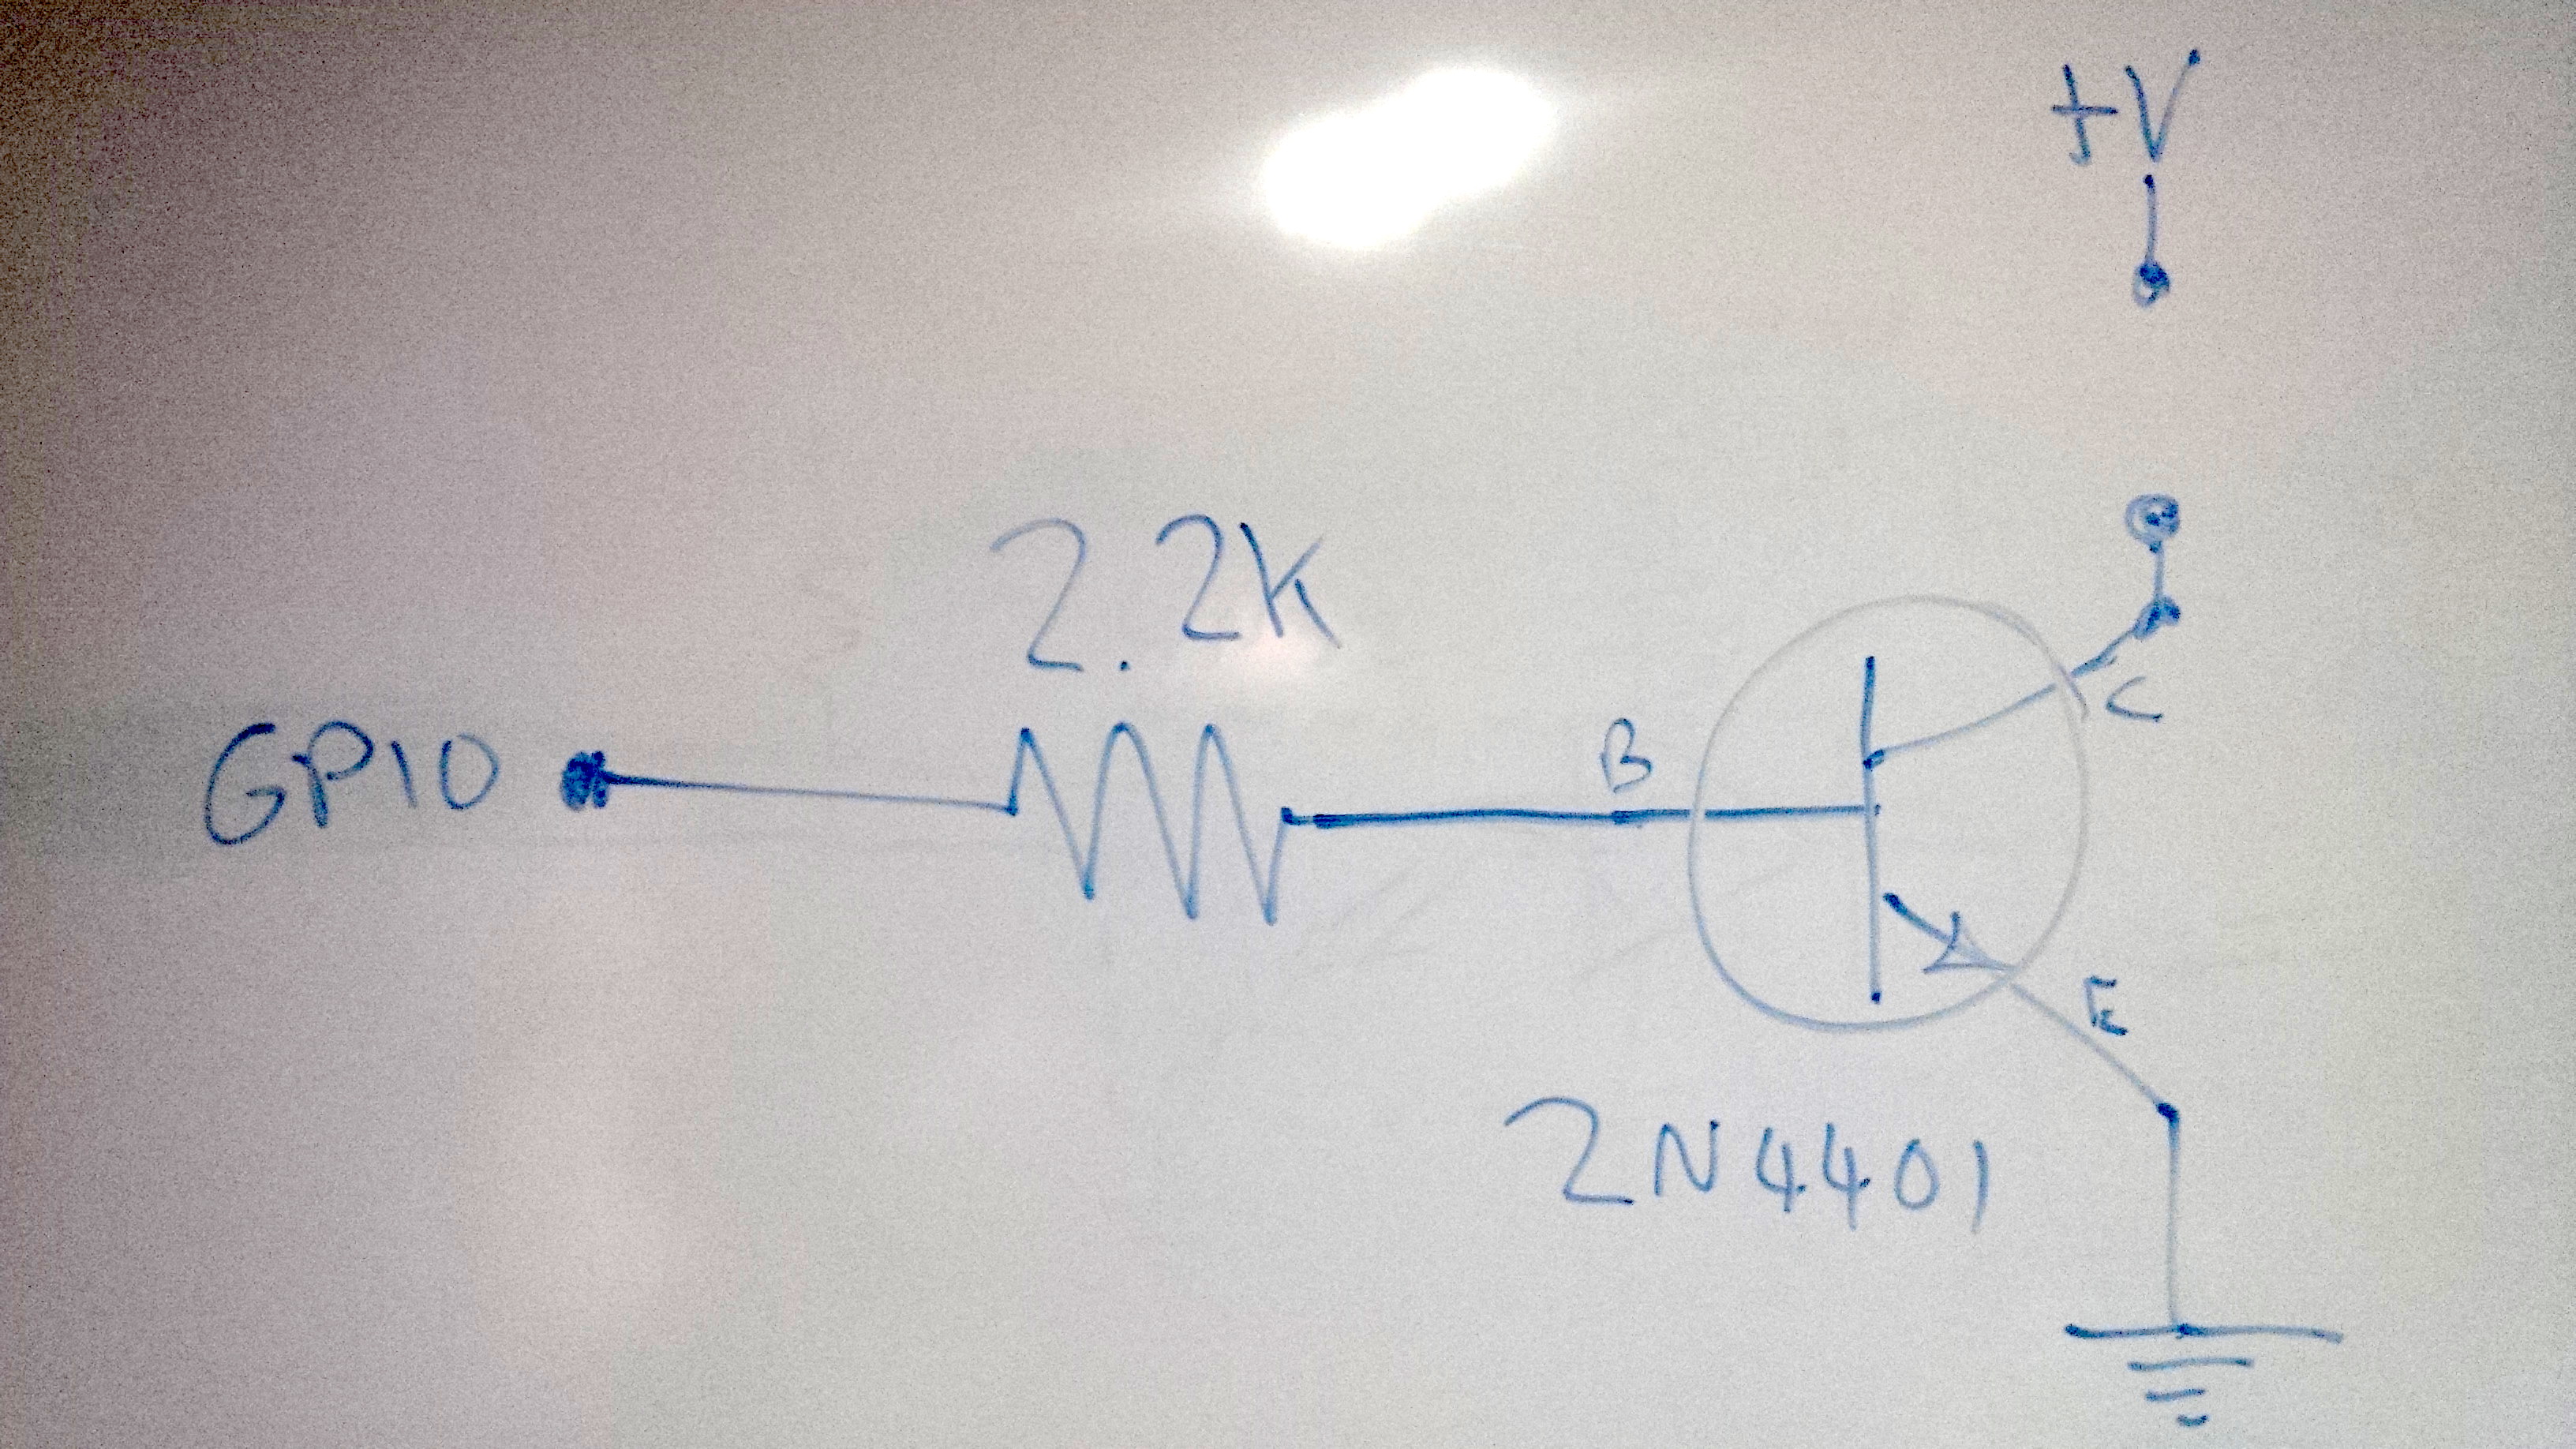 +V
2.2K
GPIO
B
C
E
2N4401